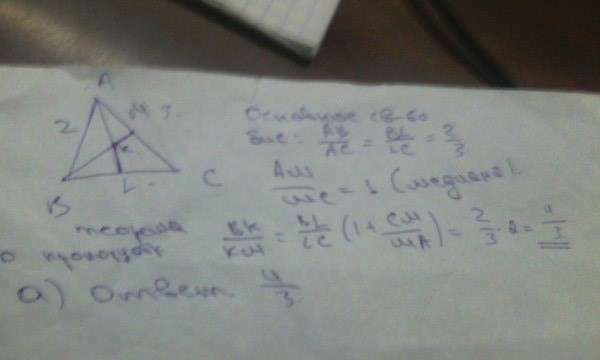 A
2
M
3
K
B
L
C
Основное св-во
бис: AB/AC = BL/LC = 2/3
AM/MC = 1 (медиана).
теорема о пропорциях
BK/KM = BL/LC (1 + CM/MA) = 2/3 · 2 = 4/3
а) Ответ 4/3